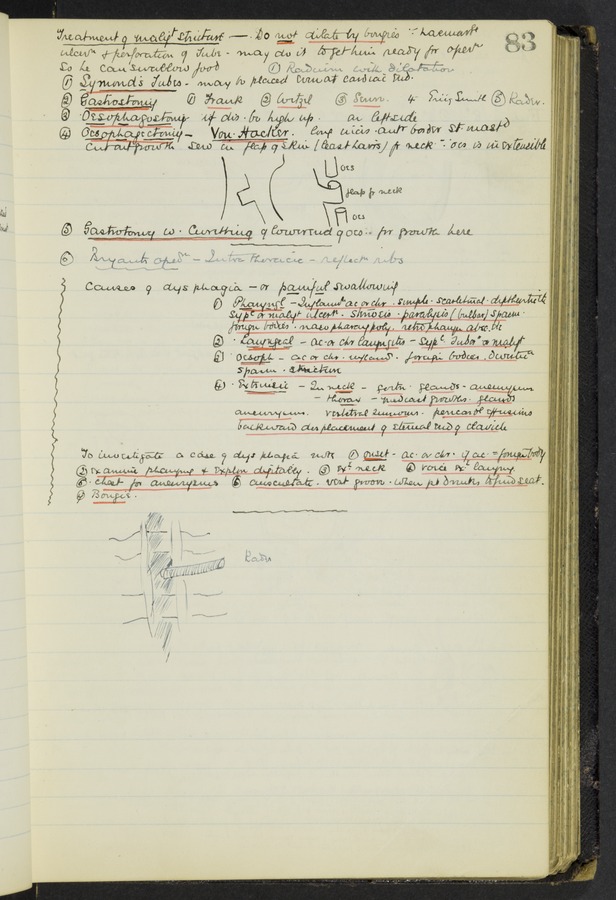 83
Treatment of malig^t stricture — Do not dilate by bougies ∵ haemorr^h
ulcer^n & perforation of Tube - may do it to get him ready for oper^n
So he can swallow food ① Radium with dilatation
① Symonds Tubes - may be placed even at cardiac end.
② Gastrostomy ① Frank ② Witzel ③ Senn. 4 Greig Smith ⑤ Kader.
③ Oesophagostomy if dis. be high up. on left side
④ Oesophagectomy - Von Hacker. long incis. ant^r border st. mast^d
cut out growth Sew in flap of skin (least hairs) fr neck ∵ oes is inextensible
oes
flap fr neck
oes
⑤ Gastrotomy w. Curetting of lower end of oes. for growth here
⑥ Bryants oper^n - Intra thoracic - reflect ribs
Causes of dysphagia - or painful swallowing
① Pharyngl - Inflam^n ac or chr. simple. scarlatinal. diphtheritic
Syp^c or malig^t ulcer^n. stenosis. paralysis (bulbar) spasm.
foreign bodies. naso pharyng poly. retro pharyn absc. etc
② Laryngeal - ac. or chr laryngitis - Syp^c Tuber^r or malig^t
③ Oesoph - ac or chr. inflam^n. foreign bodies. Divertic^a
spasm. stricture
④ Extrinsic - In neck - goitre. glands - aneurysms
- thorax - mediast growths. glands
aneurysms. vertebral tumours. pericard^l effusions
backward displacement of sternal end of clavicle
To investigate a case of dysphagia note ① onset - ac. or chr. if ac. = foreign body
② examine pharynx & explore digitally. ③ Ex^n neck ④ voice ex^n larynx
⑤ chest for aneurysms ⑥ auscultate. vert groove. when pt drinks to find seat.
⑦ Bougie.